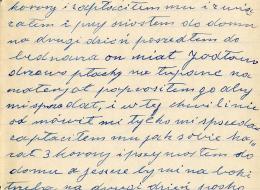 korony i zapłaciłem mu i zabra
załem i przyniosłem do domu
na drugi dzień poszedłem do
bednarza on miał Jodłowo
drzewo ptaszky nie rypane na
materjał poprosiłem go aby
mi sprzedał, i w tej chwili nie
od mówił mi tyćko mi sprzedał
zapłaciłem mu jak sobie ka,
zał 3 korony i przyniosłem do
domu a jesce by mi na boki
trzeba na drugi dzień poszło